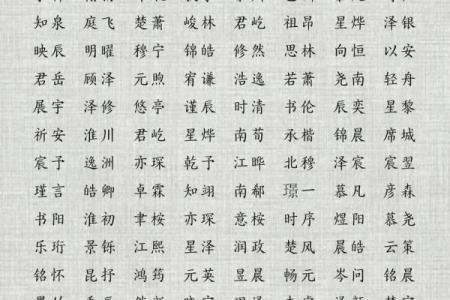 知泉 庭飞 楚萧 峻林 君屹 祖昂 星烨 泽银
映辰 明曜 穆宁 锦皓 修然 思林 向恒 以安
君岳 顾泽 元煦 宥谦 浩逸 若萧 尧南 轻舟
展宇 泽修 悠亭 谨辰 时清 书伦 辰奕 星黎
祈安 淮川 君屹 星烨 南荀 承楷 锦晨 席城
宸予 逸洲 亦琛 乾予 江晔 北穆 泽宸 宸翌
瑾言 皓卿 卓霖 知翊 南郗 璟一 慕凡 彦森
书阳 淮初 聿桉 亦琛 意桉 时序 煜阳 慕尧
乐珩 景铄 江熙 星泽 润政 楚风 晨皓 云策
铭怀 昆抒 鸿筠 元英 昱晨 畅元 岑问 铭晨